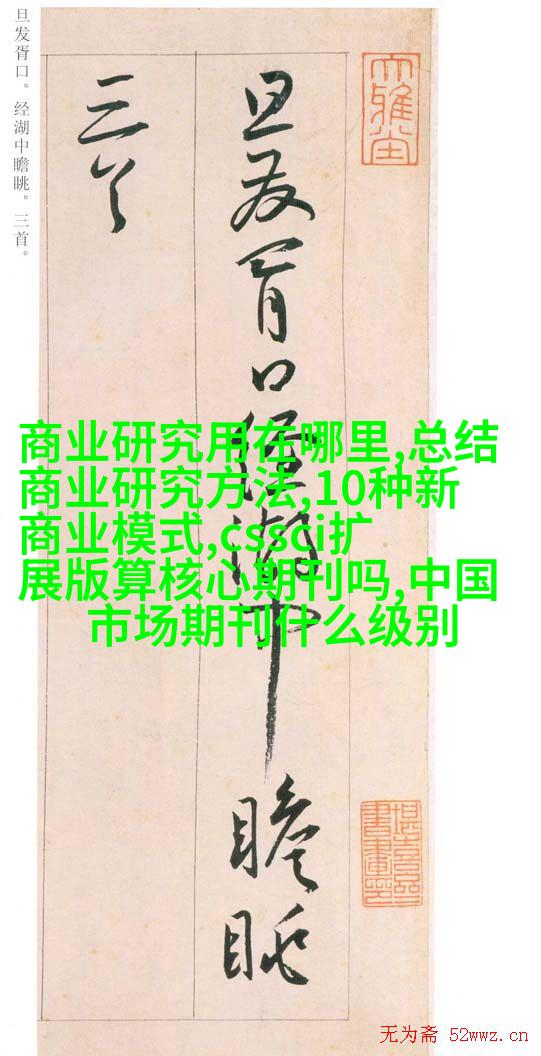 旦发胥口。经湖中瞻眺。三首。
旦發胥口經湖中瞻眺
三首
商业研究用在哪里,总结
商业研究方法,10种新
商业模式,cssci扩
展版算核心期刊吗,中国
市场期刊什么级别
无为斋 52wwz.cn